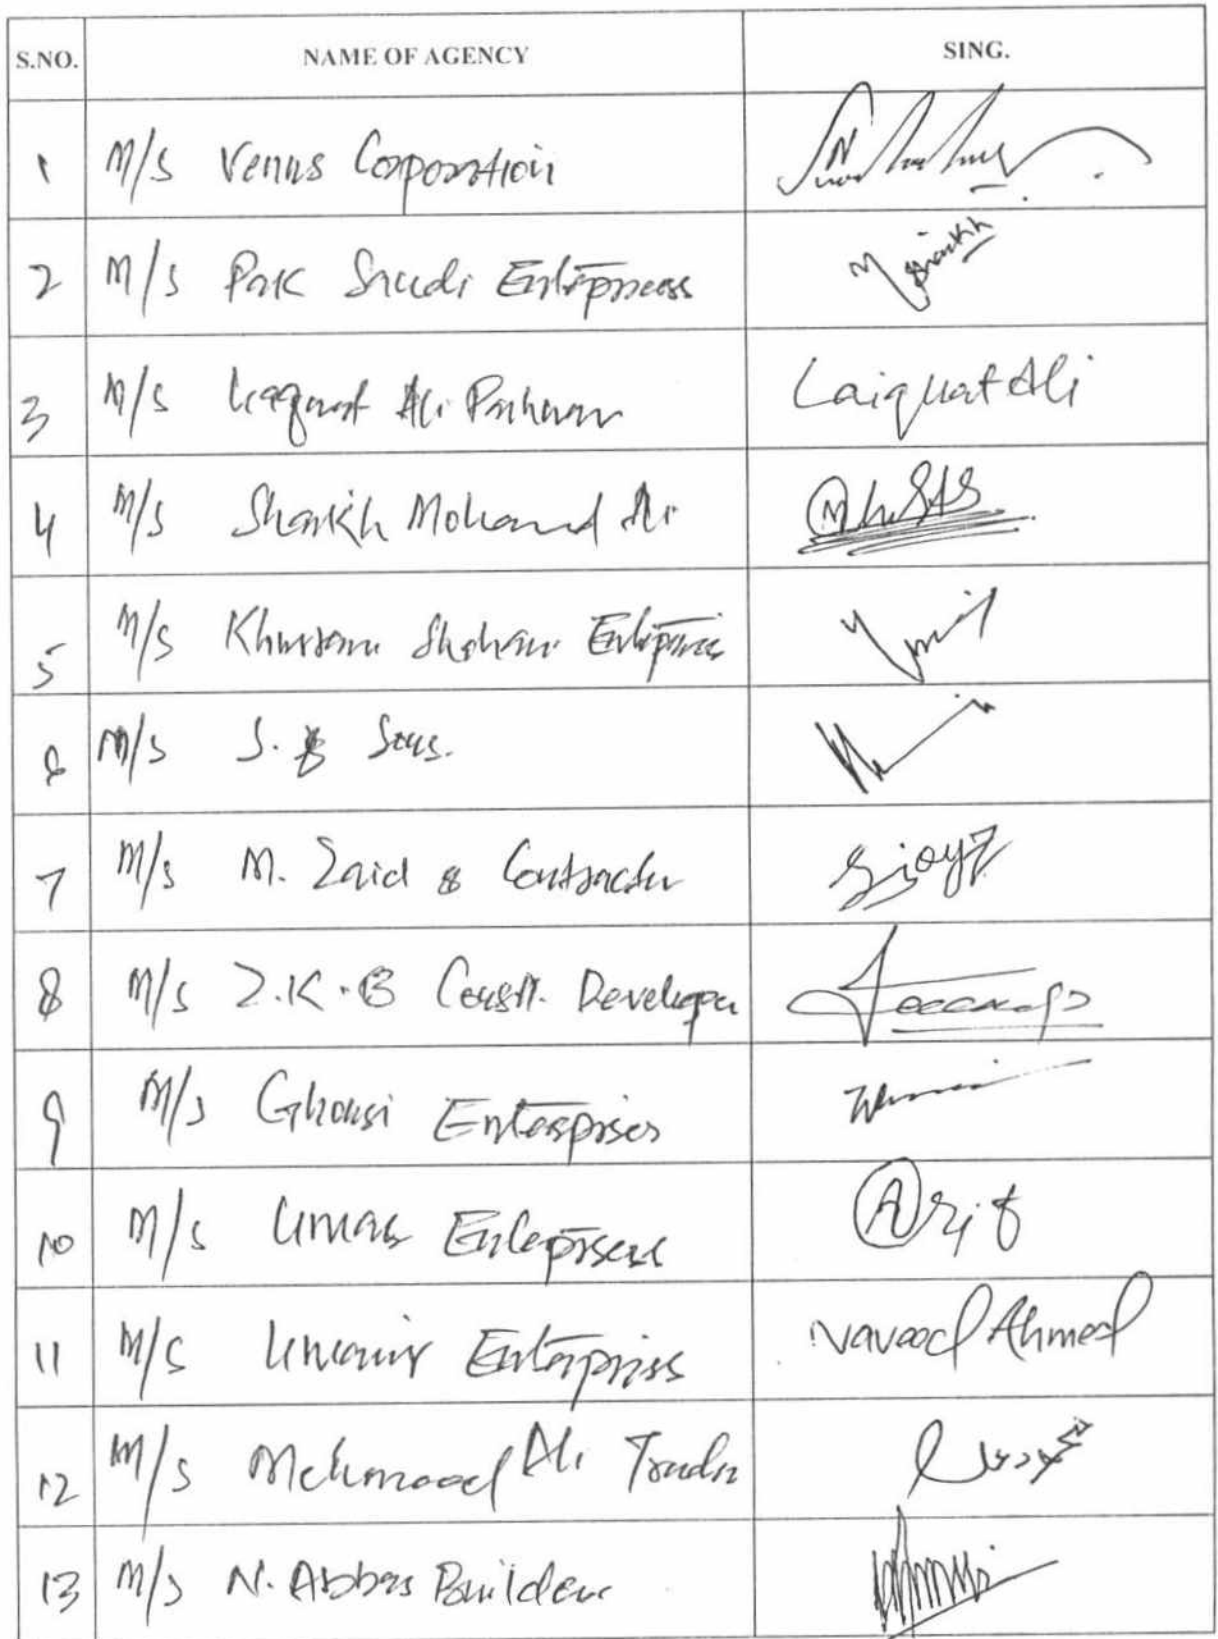 S.NO. NAME OF AGENCY SING.
1 M/S Venus Corporation
2 M/S Pak Saudi Enterprises
3 M/S Liaquat Ali Panhwar Laiquat Ali
4 M/S Shaikh Mohamad Ali
5 M/S Khurram Shahani Enterprise
6 M/S S. & Sons.
7 M/S M. Zaid & Contractor
8 M/S Z.K.B Const. Developer
9 M/S Ghousi Enterprises
10 M/S Umar Enterprises Arif
11 M/S Umair Enterprises Naveed Ahmed
12 M/S Mehmood Ali Trader
13 M/S N. Abbas Builders